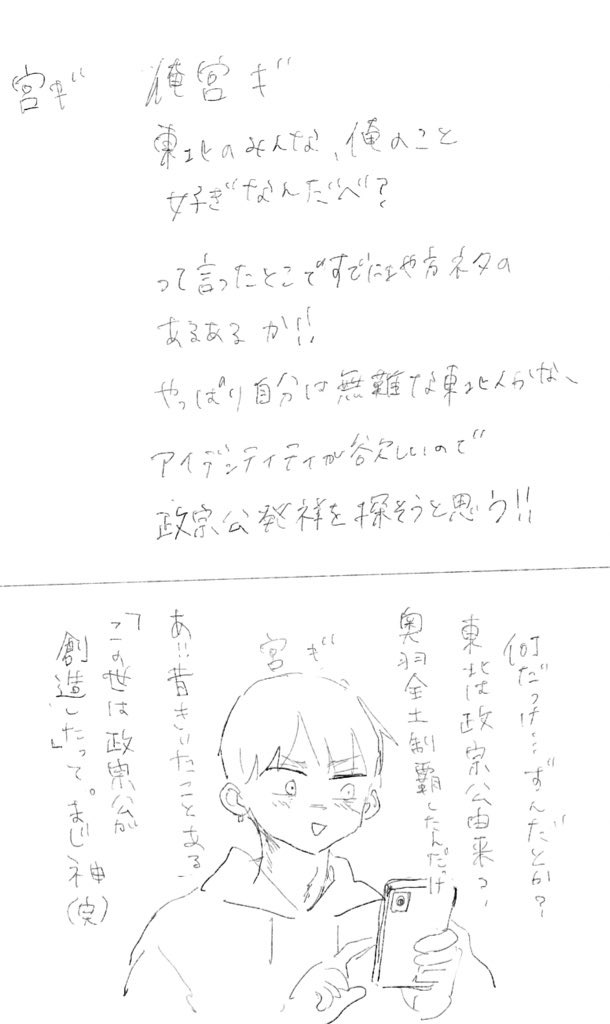 宮ギ
俺宮ギ
東北のみんな、俺のこと
好ぎなんだべ?
って言ったとこですでに地方ネタの
あるあるか!!
やっぱり自分は無難な東北人かな、
アイデンティティが欲しいので
政宗公発祥を探そうと思う!!
何だっけ…ずんだとか?
東北は政宗公由来?
奥羽全土制覇したんだっけ
宮ギ
あ!!昔きいたことある
「この世は政宗公が
創造した」って。まじ神
(実)